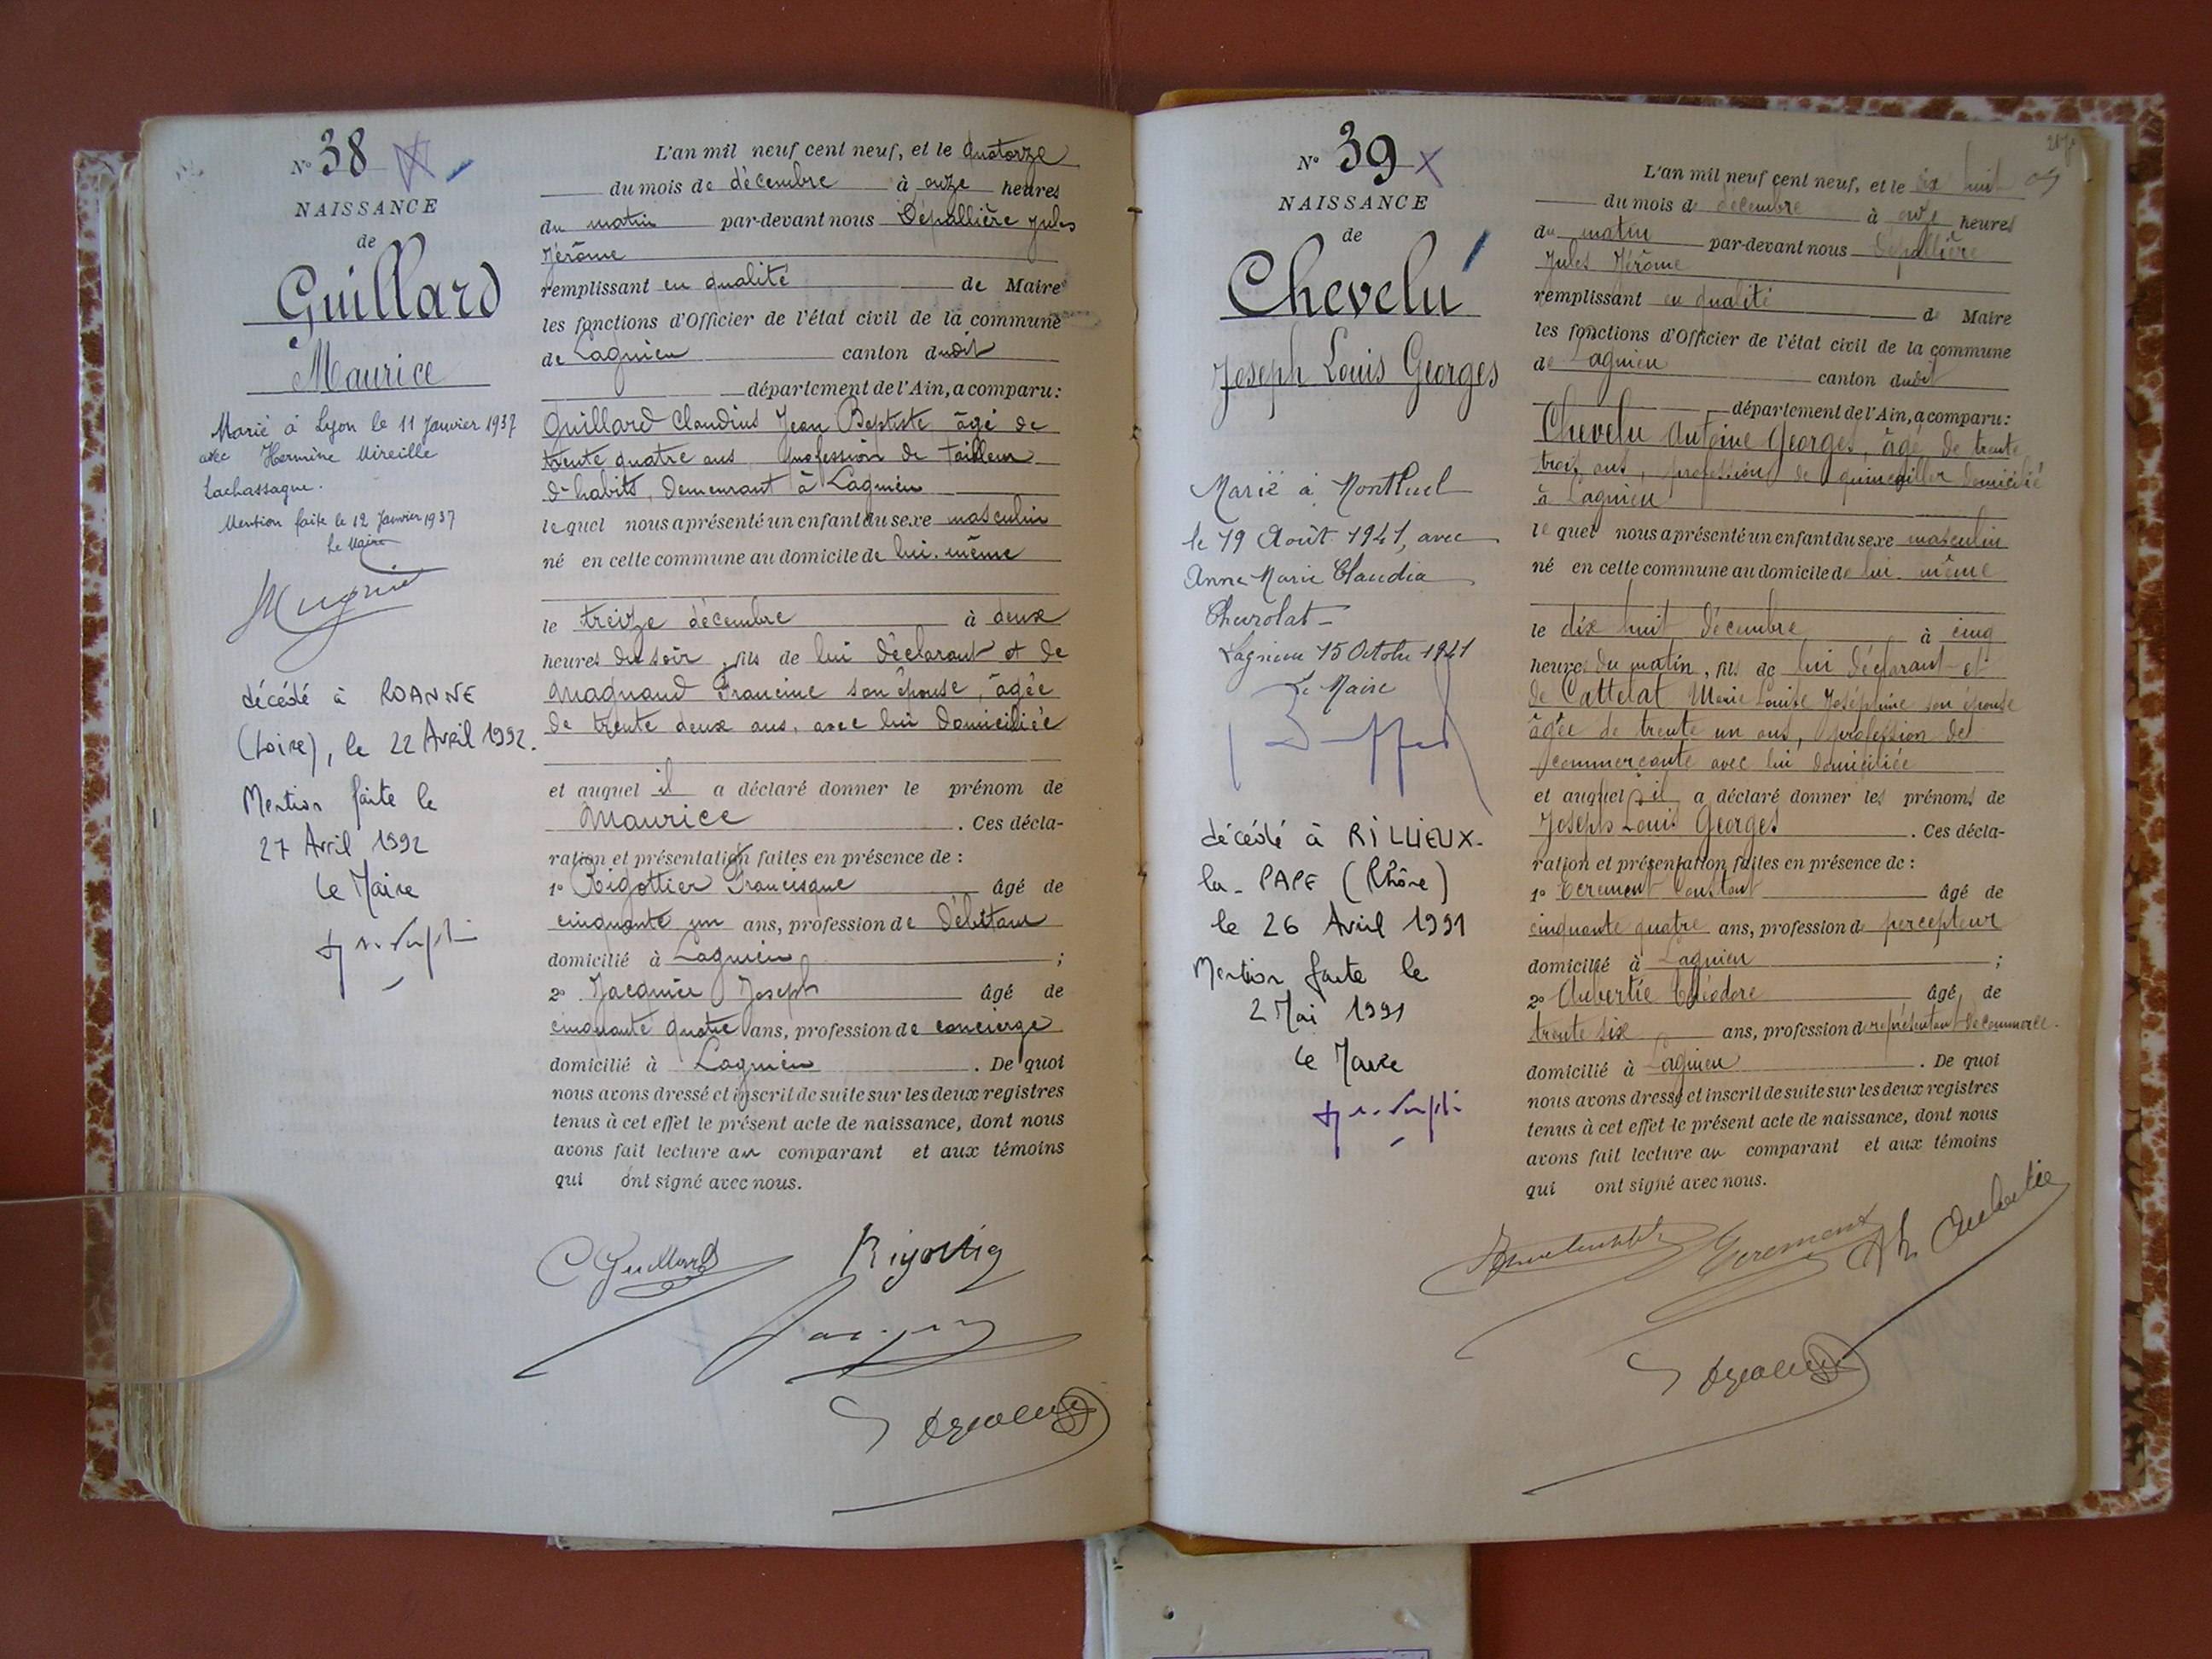 N° 38
NAISSANCE
de
Guillard
Maurice
Marié à Lyon le 11 Janvier 1937
avec Hermine Mireille
Lachassagne.
Mention faite le 12 Janvier 1937
Le Maire
décédé à ROANNE
(Loire), le 22 Avril 1992.
Mention faite le
27 Avril 1992
Le Maire
L'an mil neuf cent neuf, et le quatorze
du mois de décembre à onze heures
du matin par-devant nous Dépallière Jules
Jérôme
remplissant en qualité de Maire
les fonctions d'Officier de l'état civil de la commune
de Lagnieu canton dudit
département de l'Ain, a comparu :
Guillard Claudius Jean Baptiste âgé de
trente quatre ans profession de tailleur
d'habits, demeurant à Lagnieu
lequel nous a présenté un enfant du sexe masculin
né en cette commune au domicile de lui-même
le treize décembre à deux
heures du soir, fils de lui déclarant et de
Magnand Francine son épouse, âgée
de trente deux ans, avec lui domiciliée
et auquel il a déclaré donner le prénom de
Maurice . Ces décla-
ration et présentation faites en présence de :
1° Rigottier Francisque âgé de
cinquante un ans, profession de Débitant
domicilié à Lagnieu ;
2° Jacquier Joseph âgé de
cinquante quatre ans, profession de concierge
domicilié à Lagnieu . De quoi
nous avons dressé et inscrit de suite sur les deux registres
tenus à cet effet le présent acte de naissance, dont nous
avons fait lecture au comparant et aux témoins
qui ont signé avec nous.
C Guillard
N° 39
NAISSANCE
de
Chevelu
Joseph Louis Georges
Marié à Montluel
le 19 Août 1941, avec
Anne Marie Claudia
Churolat
Lagnieu 15 Octobre 1941
Le Maire
décédé à RILLIEUX-
la-PAPE (Rhône)
le 26 Avril 1991
Mention faite le
2 Mai 1991
Le Maire
L'an mil neuf cent neuf, et le dix huit
du mois de décembre à onze heures
du matin par-devant nous Dépallière
Jules Jérôme
remplissant en qualité de Maire
les fonctions d'Officier de l'état civil de la commune
de Lagnieu canton dudit
département de l'Ain, a comparu :
Chevelu Antoine Georges, âgé de trente
trois ans, profession de quincaillier domicilié
à Lagnieu
lequel nous a présenté un enfant du sexe masculin
né en cette commune au domicile de lui-même
le dix huit décembre à cinq
heures du matin, fils de lui déclarant et
de Cattelat Marie Louise Joséphine son épouse
âgée de trente un ans, profession de
commerçante avec lui domiciliée
et auquel il a déclaré donner les prénoms de
Joseph Louis Georges . Ces décla-
ration et présentation faites en présence de :
1° Constant âgé de
cinquante quatre ans, profession de percepteur
domicilié à Lagnieu ;
2° Aubertie Théodore âgé de
trente six ans, profession de représentant de commerce
domicilié à Lagnieu . De quoi
nous avons dressé et inscrit de suite sur les deux registres
tenus à cet effet le présent acte de naissance, dont nous
avons fait lecture au comparant et aux témoins
qui ont signé avec nous.
Th Aubertie